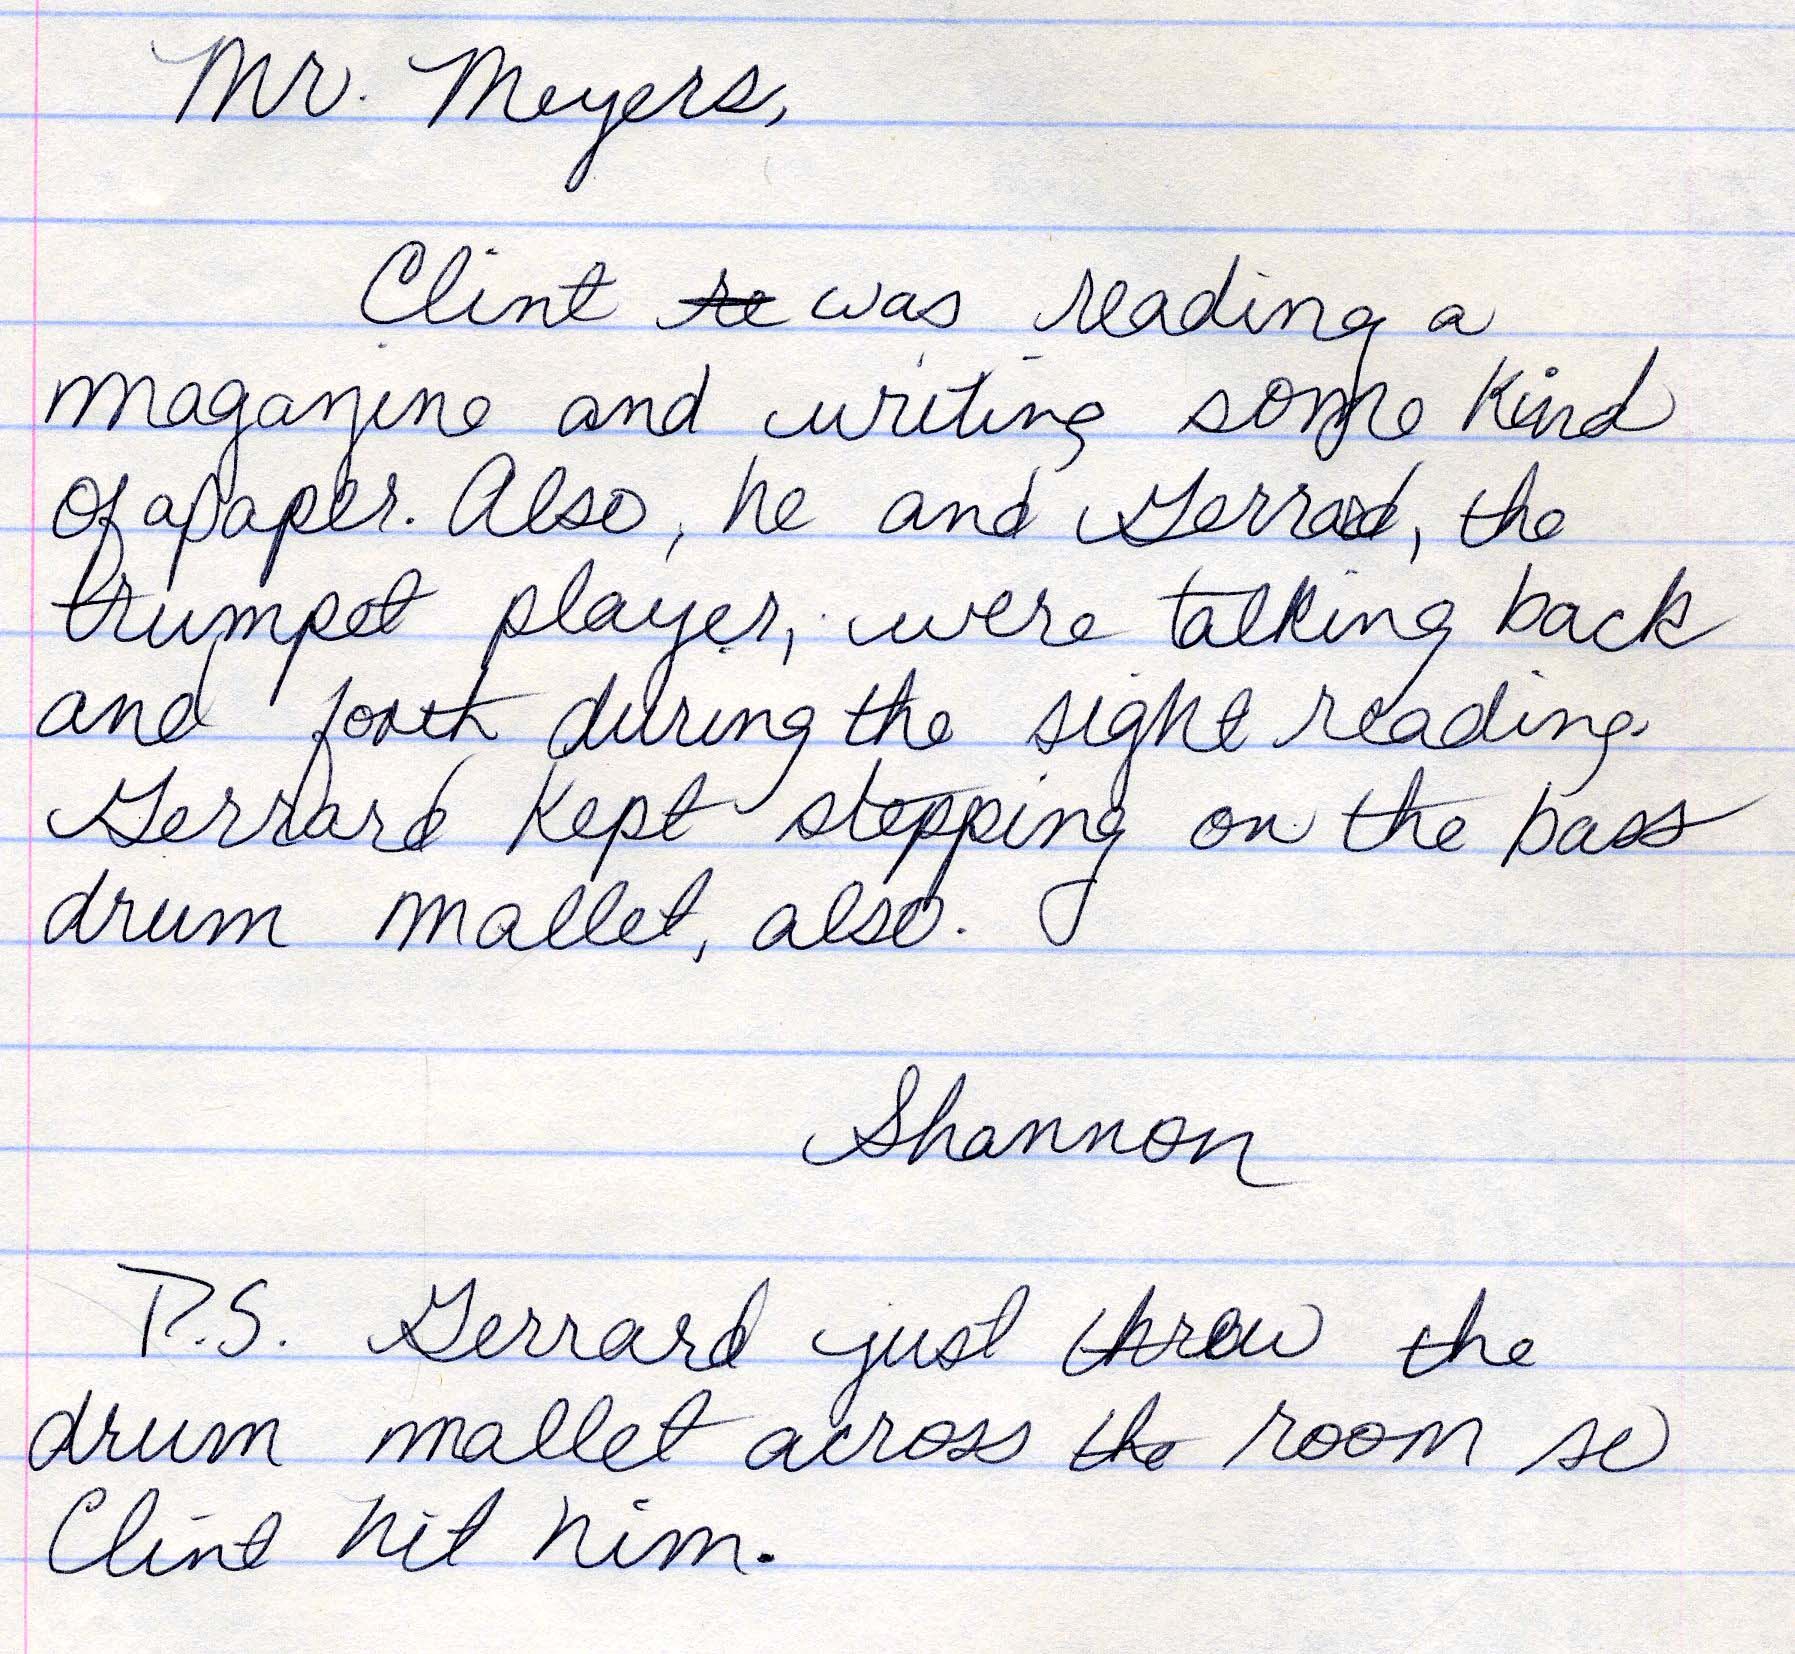 Mr. Meyers,
Clint re was reading a
magazine and writing some kind
of a paper. Also, he and Gerrard, the
trumpet player, were talking back
and forth during the sight reading.
Gerrard kept stepping on the bass
drum mallet, also.
Shannon
P.S. Gerrard just threw the
drum mallet across the room so
Clint hit him.